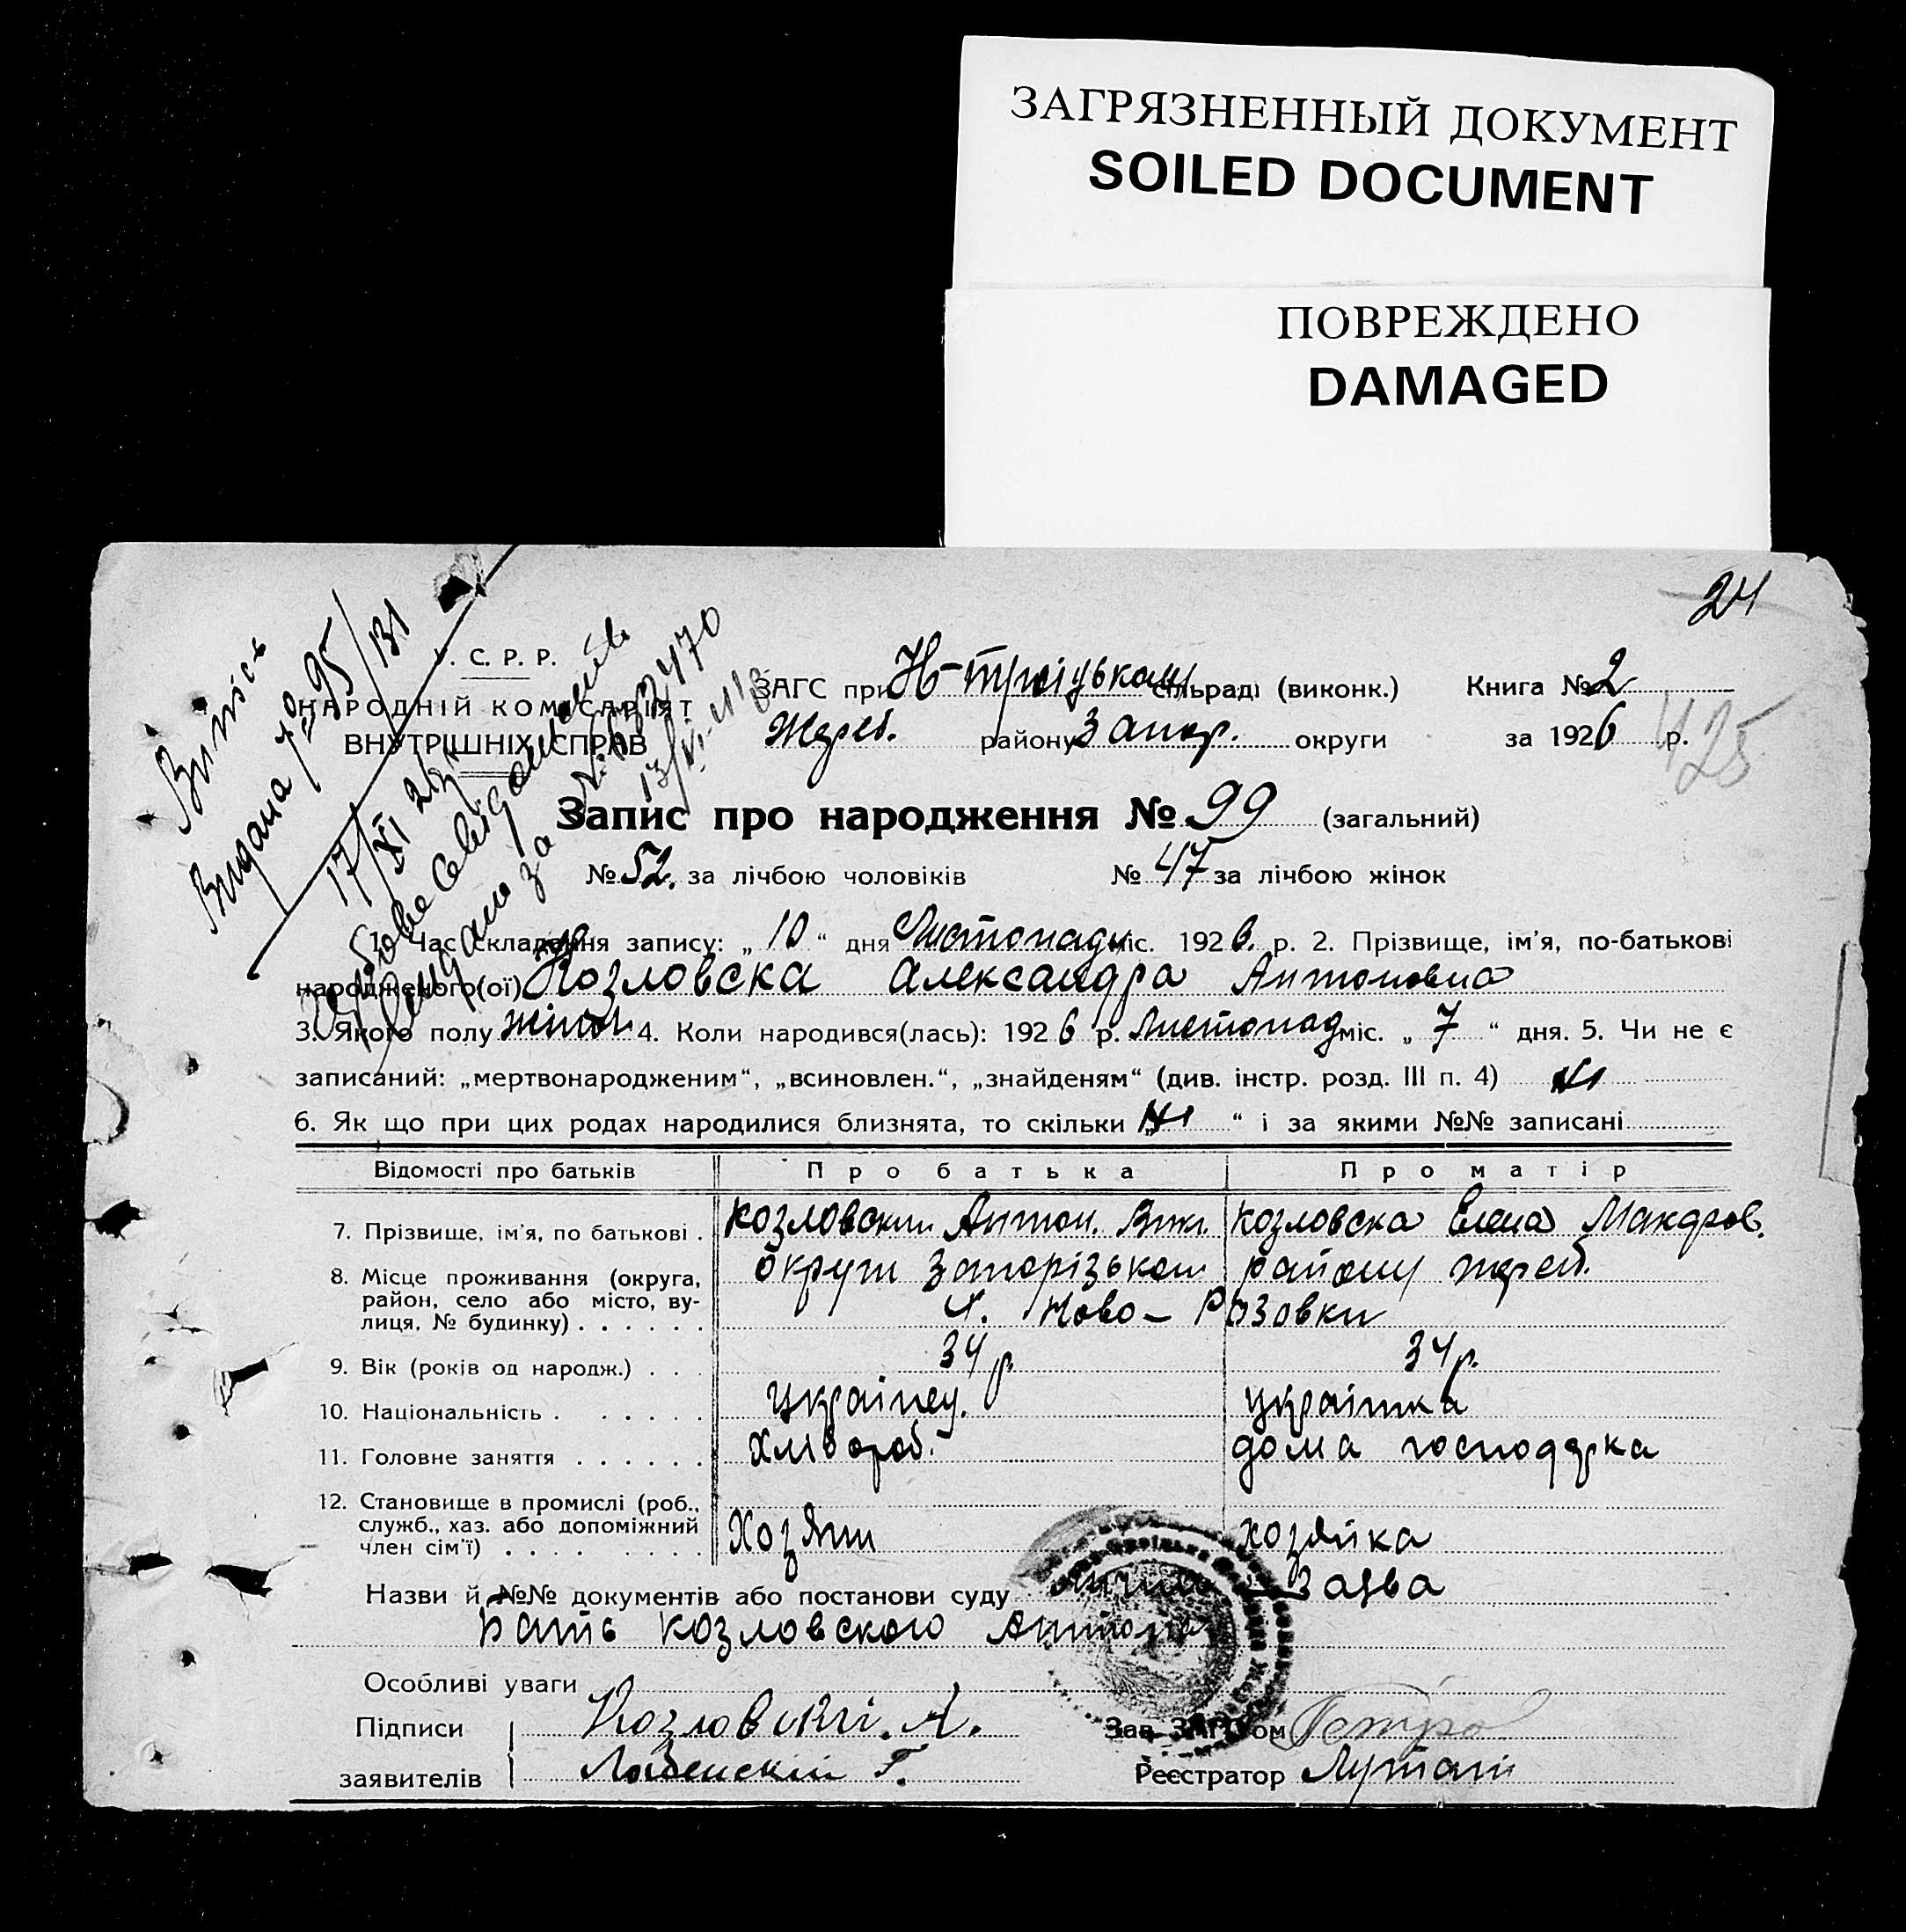 ЗАГРЯЗНЕННЫЙ ДОКУМЕНТ
SOILED DOCUMENT
ПОВРЕЖДЕНО
DAMAGED
24
125
Випись
Видана 7º 95/131
17/XI 26
Видано за № 682470
У. С. Р. Р.
НАРОДНІЙ КОМІСАРІЯТ
ВНУТРІШНІХ СПРАВ
ЗАГС при Н-Троіцьком сільраді (виконк.) Книга № 2
Жереб. району Запор. округи за 1926 р.
Запис про народження № 99 (загальний)
№ 52. за лічбою чоловіків № 47 за лічбою жінок
1. Час складення запису: „ 10 “ дня Листопаду міс. 1926. р. 2. Прізвище, ім’я, по-батькові
народженого(ої) Козловска Александра Антоновна
3. Якого полу жіноч 4. Коли народився(лась): 1926 р. Листопад міс. „ 7 “ дня. 5. Чи не є
записаний: „мертвонародженим“, „всиновлен.“, „знайденям“ (див. інстр. розд. III п. 4) ні
6. Як що при цих родах народилися близнята, то скільки „ ні “ і за якими №№ записані
Відомості про батьків Про батька Про матір
7. Прізвище, ім’я, по батькові . Козловский Антон. Козловска Елена Макаров.
8. Місце проживання (округа, округи Запорізькои району жереб.
район, село або місто, ву-
лиця, № будинку) . . . . . . Ново-Розовки
9. Вік (років од народж.) . . . 34 р. 34 р.
10. Національність . . . . . . українец. українка
11. Головне заняття . . . . . . хлібороб. дома господарка
12. Становище в промислі (роб.,
служб., хаз. або допоміжний Хозяин хозяйка
член сім’ї) . . . . . . . .
Назви й №№ документів або постанови суду заява
Батъ Козловского Антона
Особливі уваги
Підписи Козловскі. А. Зав. ЗАГС’ом Петро
заявителів Г. Реєстратор